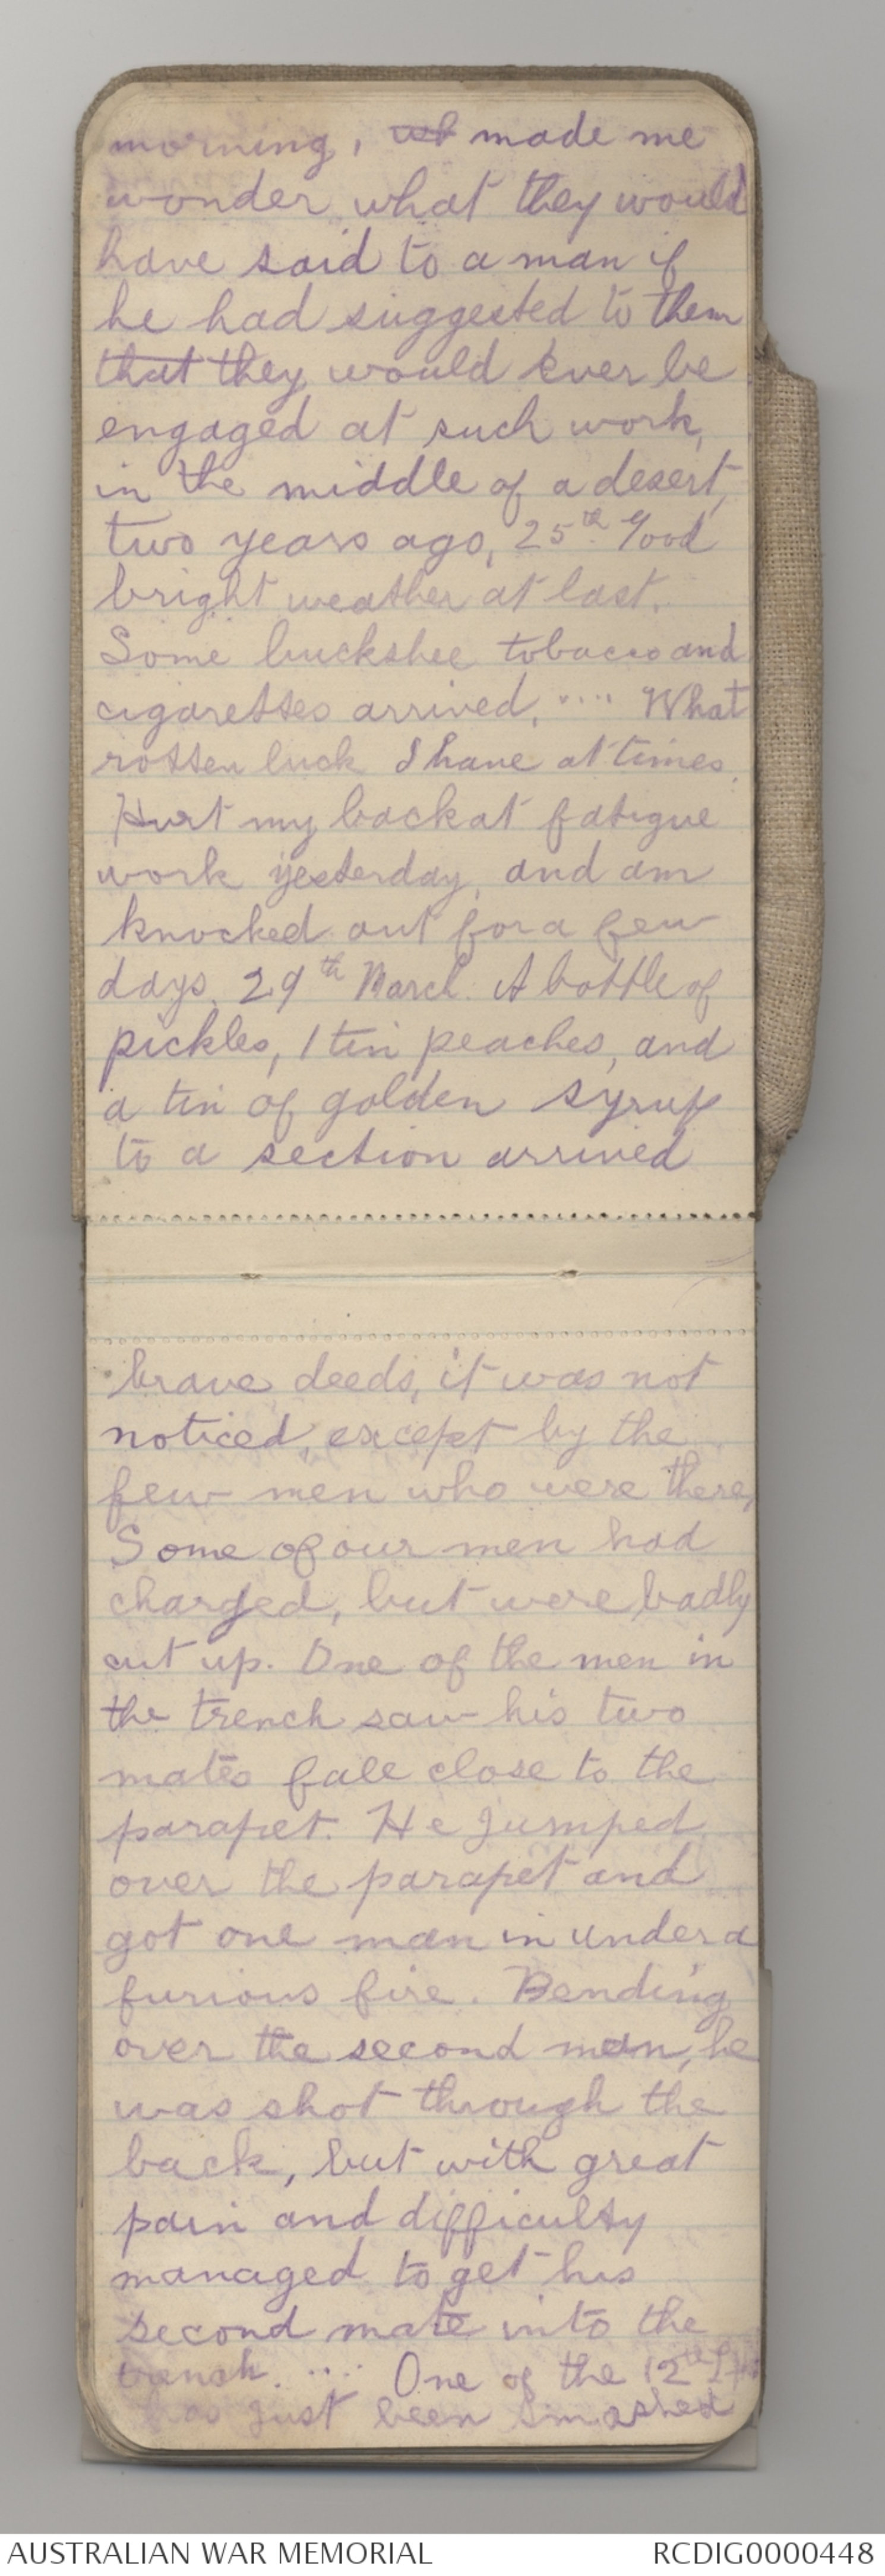 morning, made me
wonder what they would
have said to a man if
he had suggested to them
that they would ever be
engaged at such work,
in the middle of a desert,
two years ago, 25th. Good
bright weather at last.
Some buckshee tobacco and
cigarettes arrived. .... What
rotten luck I have at times.
Hurt my back at fatigue
work yesterday, and am
knocked out for a few
days. 29th March. A bottle of
pickles, 1 tin peaches, and
a tin of golden syrup
to a section arrived
brave deeds, it was not
noticed, except by the
few men who were there,
Some of our men had
charged, but were badly
cut up. One of the men in
the trench saw his two
mates fall close to the
parapet. He jumped
over the parapet and
got one man in under a
furious fire. Bending
over the second man, he
was shot through the
back, but with great
pain and difficulty
managed to get his
second mate into the
trench. .... One of the 12th
has just been smashed
AUSTRALIAN WAR MEMORIAL RCDIG0000448